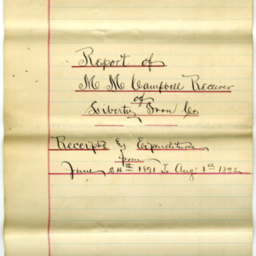 Report of
M M Campbell Receiver
of
Liberty Iron Co
Receipts & Expenditures
from
June 24th 1891 To Aug: 1st 1892